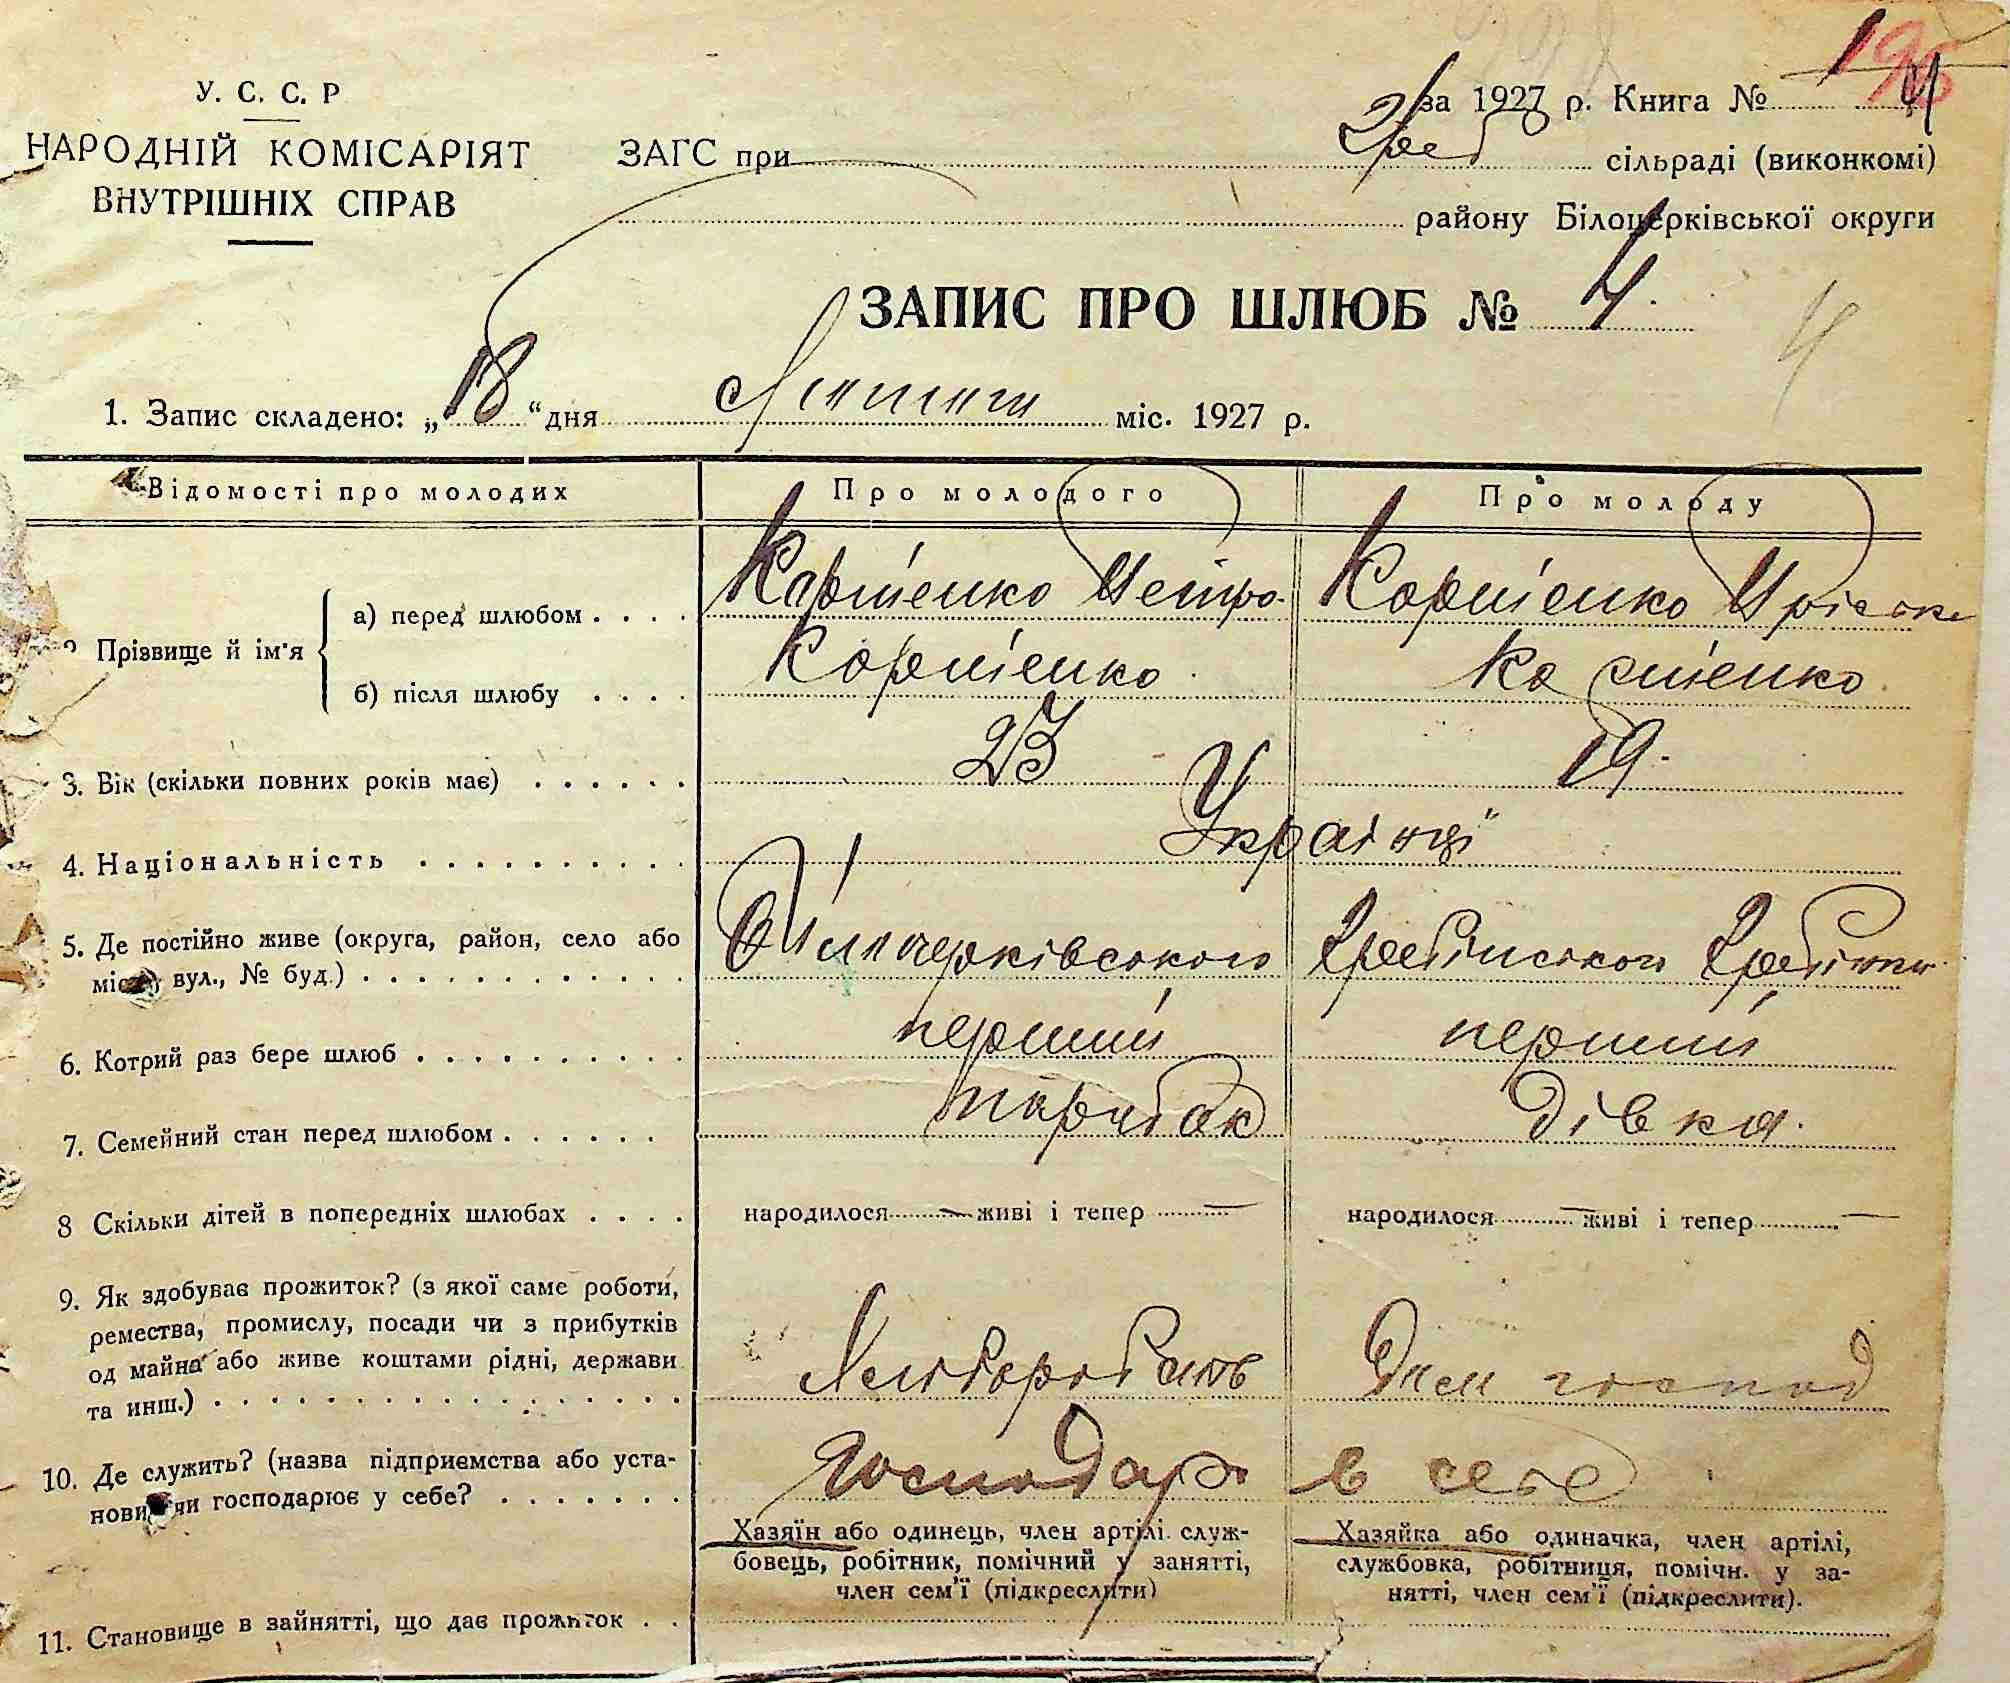 У. С. С. Р
НАРОДНІЙ КОМІСАРІЯТ
ВНУТРІШНІХ СПРАВ
за 1927 р. Книга №
ЗАГС при Греб сільраді (виконкомі)
району Білоцерківської округи
ЗАПИС ПРО ШЛЮБ № 4.
4
1. Запис складено: „ 18 “ дня Лютого міс. 1927 р.
Відомості про молодих Про молодого Про молоду
Прізвище й ім'я
а) перед шлюбом . . . . Петро
б) після шлюбу . . . .
3. Вік (скільки повних років має) . . . . . . 23 19.
4. Національність . . . . . . . . . . Українці
5. Де постійно живе (округа, район, село або
місто, вул., № буд.) . . . . . . . . . . . . . Білоцерківського Гребінського Гребінки
6. Котрий раз бере шлюб . . . . . . . . . . перший перший
7. Семейний стан перед шлюбом . . . . . . парубок дівка.
8 Скільки дітей в попередніх шлюбах . . . . народилося — живі і тепер — народилося — живі і тепер —
9. Як здобуває прожиток? (з якої саме роботи,
ремества, промислу, посади чи з прибутків
од майна або живе коштами рідні, держави
та инш.) . . . . . . . . . . . . . . . . . Хлібороб господ
10. Де служить? (назва підприємства або уста-
нови, чи господарює у себе? . . . . . . . Господар в себе
Хазяїн або одинець, член артілі служ-
бовець, робітник, помічний у занятті,
член сем'ї (підкреслити)
Хазяйка або одиначка, член артілі,
службовка, робітниця, помічн. у за-
нятті, член сем'ї (підкреслити).
11. Становище в зайнятті, що дає прожиток . .